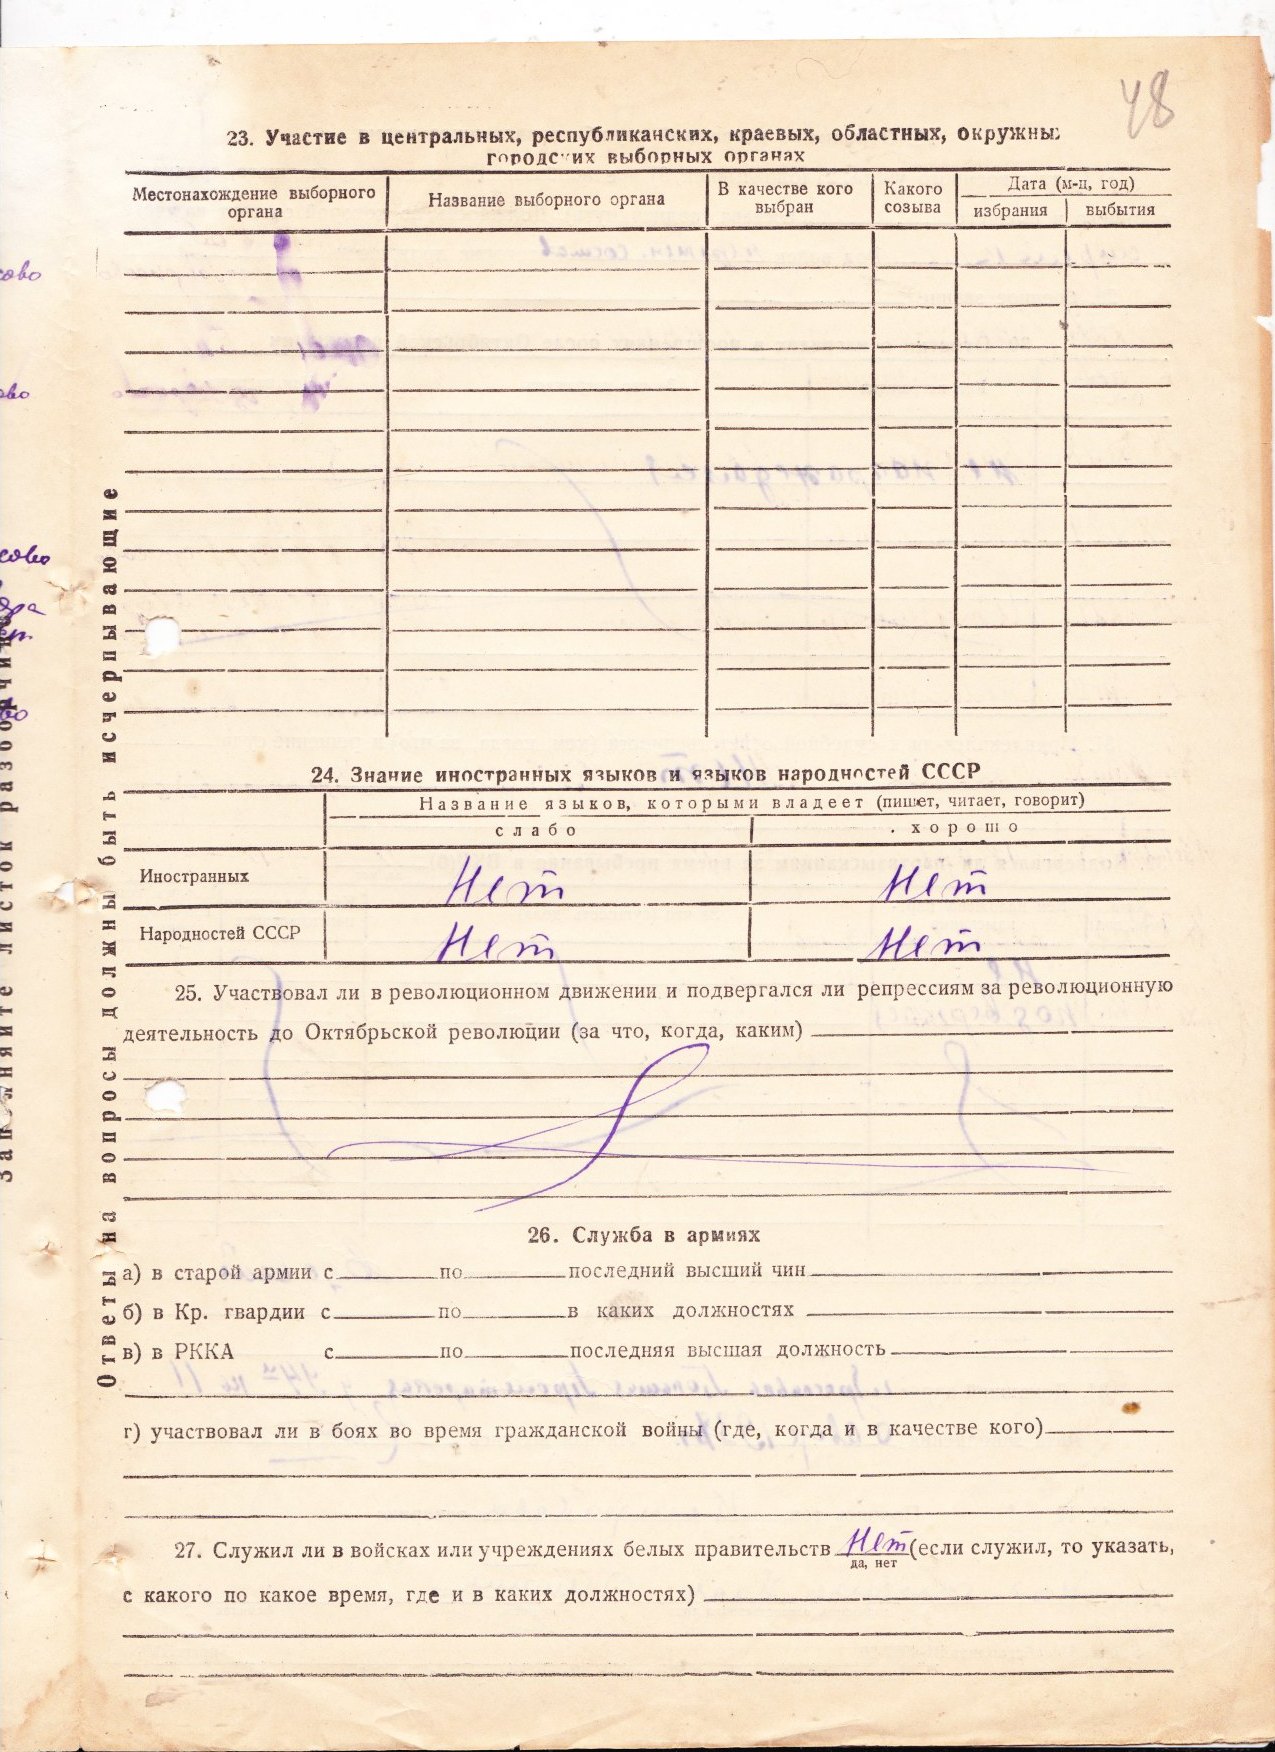 48
23. Участие в центральных, республиканских, краевых, областных, окружных
городских выборных органах
Местонахождение выборного органа
Название выборного органа
В качестве кого выбран
Какого созыва
Дата (м-ц, год)
избрания
выбытия
24. Знание иностранных языков и языков народностей СССР
Название языков, которыми владеет (пишет, читает, говорит)
слабо
хорошо
Иностранных Нет Нет
Народностей СССР Нет Нет
25. Участвовал ли в революционном движении и подвергался ли репрессиям за революционную
деятельность до Октябрьской революции (за что, когда, каким)
26. Служба в армиях
а) в старой армии с по последний высший чин
б) в Кр. гвардии с по в каких должностях
в) в РККА с по последняя высшая должность
г) участвовал ли в боях во время гражданской войны (где, когда и в качестве кого)
27. Служил ли в войсках или учреждениях белых правительств Нет (если служил, то указать,
да, нет
с какого по какое время, где и в каких должностях)
Ответы на вопросы должны быть исчерпывающие